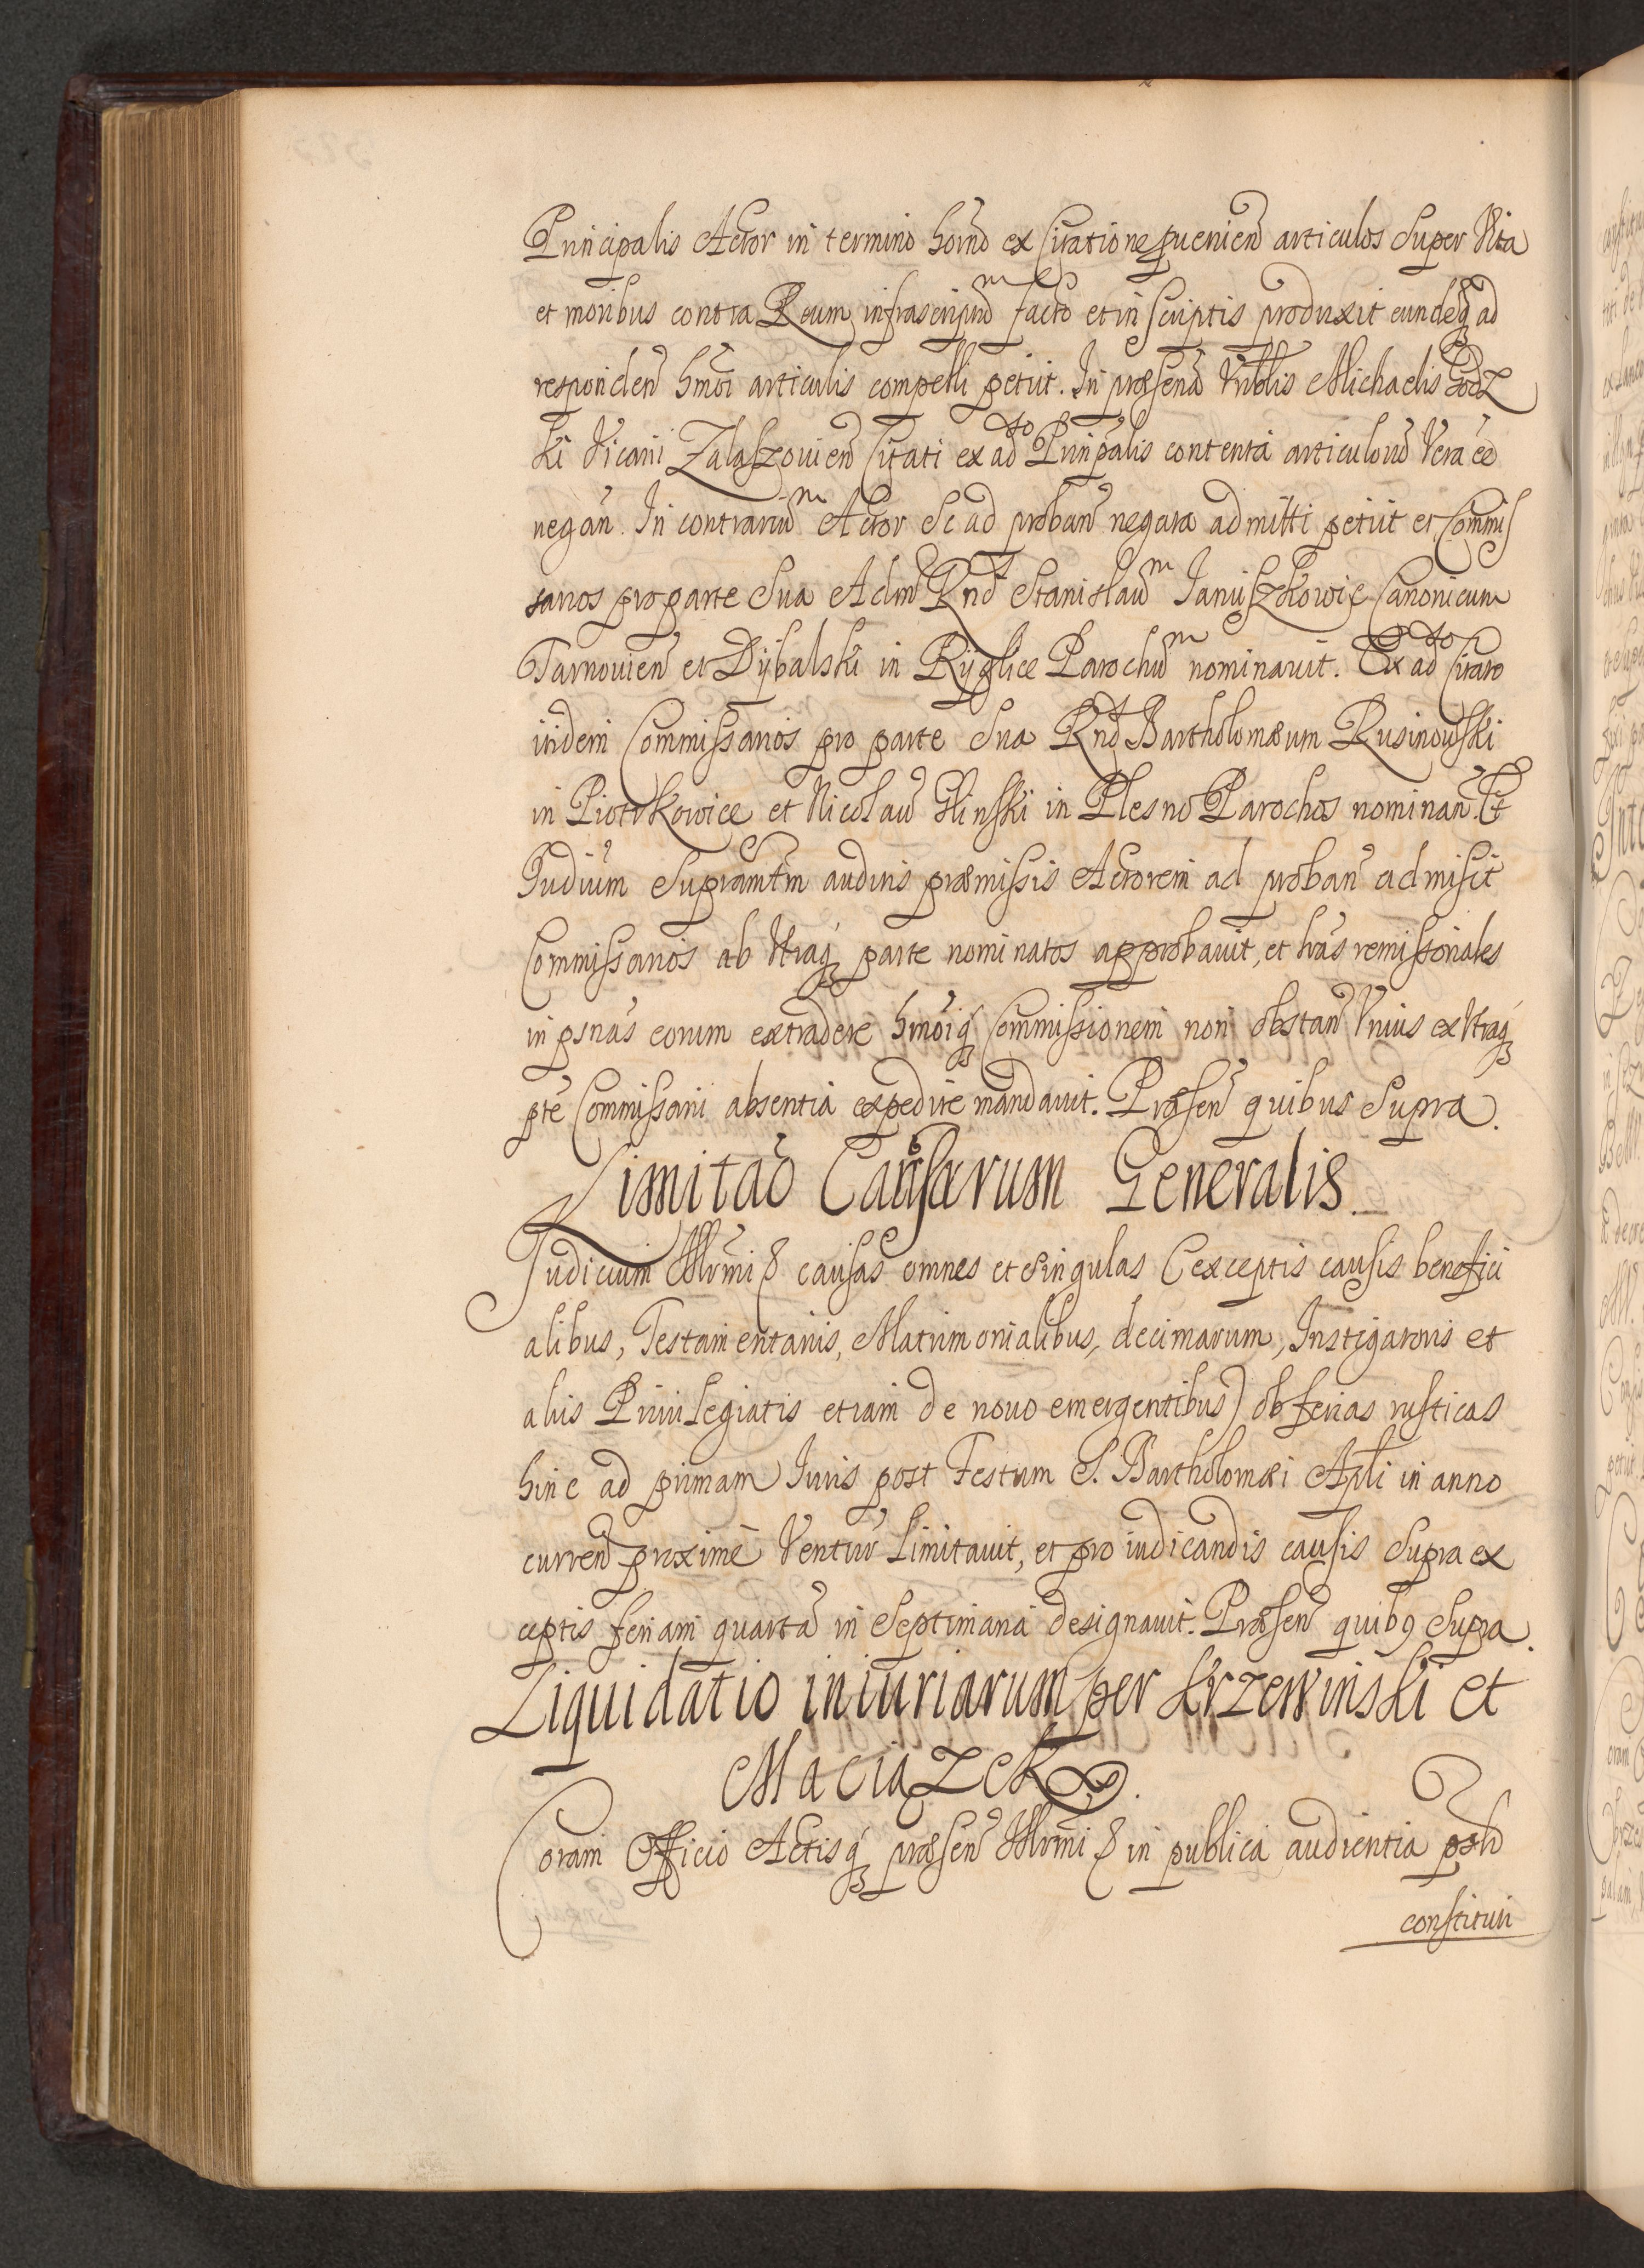 Principalis Actor in termino horno ex Citatione puenien articulos super Vita
et moribus contra Reum infrascriptum facto et in scriptis produxit eundeq ad
responden hmoi articulis compelli petiit. In præsena Vnblis Michaelis Godz
ki Vicarii Zalaszouien Citati ex adto Prinpalis contenta articuloru Vera ee
negan. In contrarium Actor se ad proban negata admitti petiit et Commis
sarios pro parte sua Adm Rnd Stanislaum Januszkowic Canonicum
Tarnouien et Dÿbalski in Rÿglice Parochum nominauit. Ex adto Citato
itidem Commissarios pro parte sua Rnd Bartholomæum Rusinowski
in Piotrkowice et Nicolau Glinski in Plesno Parochos nominan. Et
Iudium Supramtm auditis præmissis Actorem ad proban admisit
Commissarios ab Vtraq parte nominatos approbauit, et lras remissoriales
in psnas eorum extradere hmoiq Commissionem non obstan Vnius ex Vtraq
pte Commissarii absentia expedire mandauit. Præsen quibus Supra.
Limitao Causarum Generalis.
Iudicium Illrmi & causas omnes et singulas (exceptis causis benefici
alibus, Testamentariis, Matrimonialibus, decimarum, Instigatoris et
aliis Priuilegiatis etiam de nouo emergentibus) ob ferias rusticas
hinc ad primam Iuris post Festum S. Bartholomæi Apli in anno
curren proxime Ventur limitauit, et pro iudicandis causis supra ex
ceptis feriam quarta in Septimana designauit. Præsen quib9 Supra.
Liquidatio iniuriarum per Krzerwinski et
Maciązek.
Coram Officio Actisq præsen Illrmi & in publica audientia psh
constituti